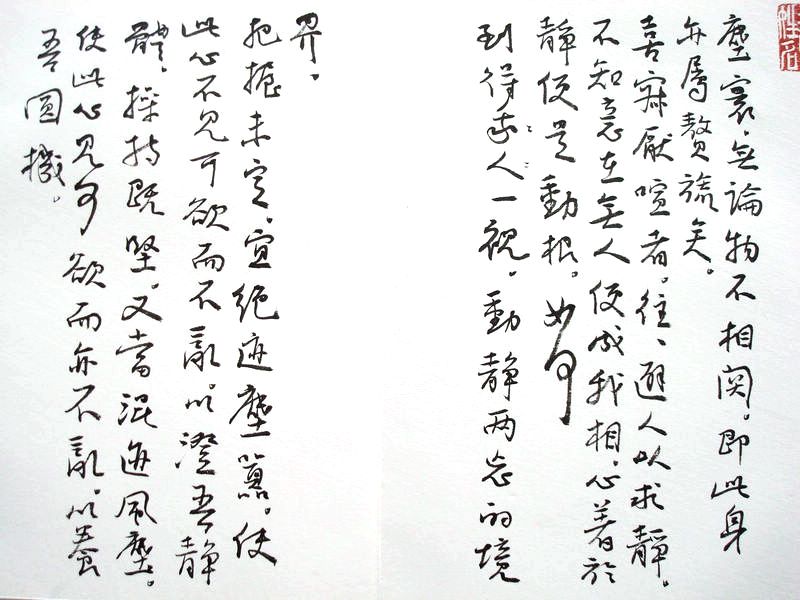 塵寰。無論物不相関。即此身
亦屬贅旒矣。
喜寂厭喧者。往、避人以求靜。
不知意在無人便成我相。心着於
靜便是動根。如何
到得我人一視。動靜两忘的境
界。
把握未定。宜絕迹塵囂。使
此心不见可欲而不亂。以澄吾靜
體。操持既堅。又當混迹風塵。
使此心见可欲而亦不亂。以养
吾圓機。